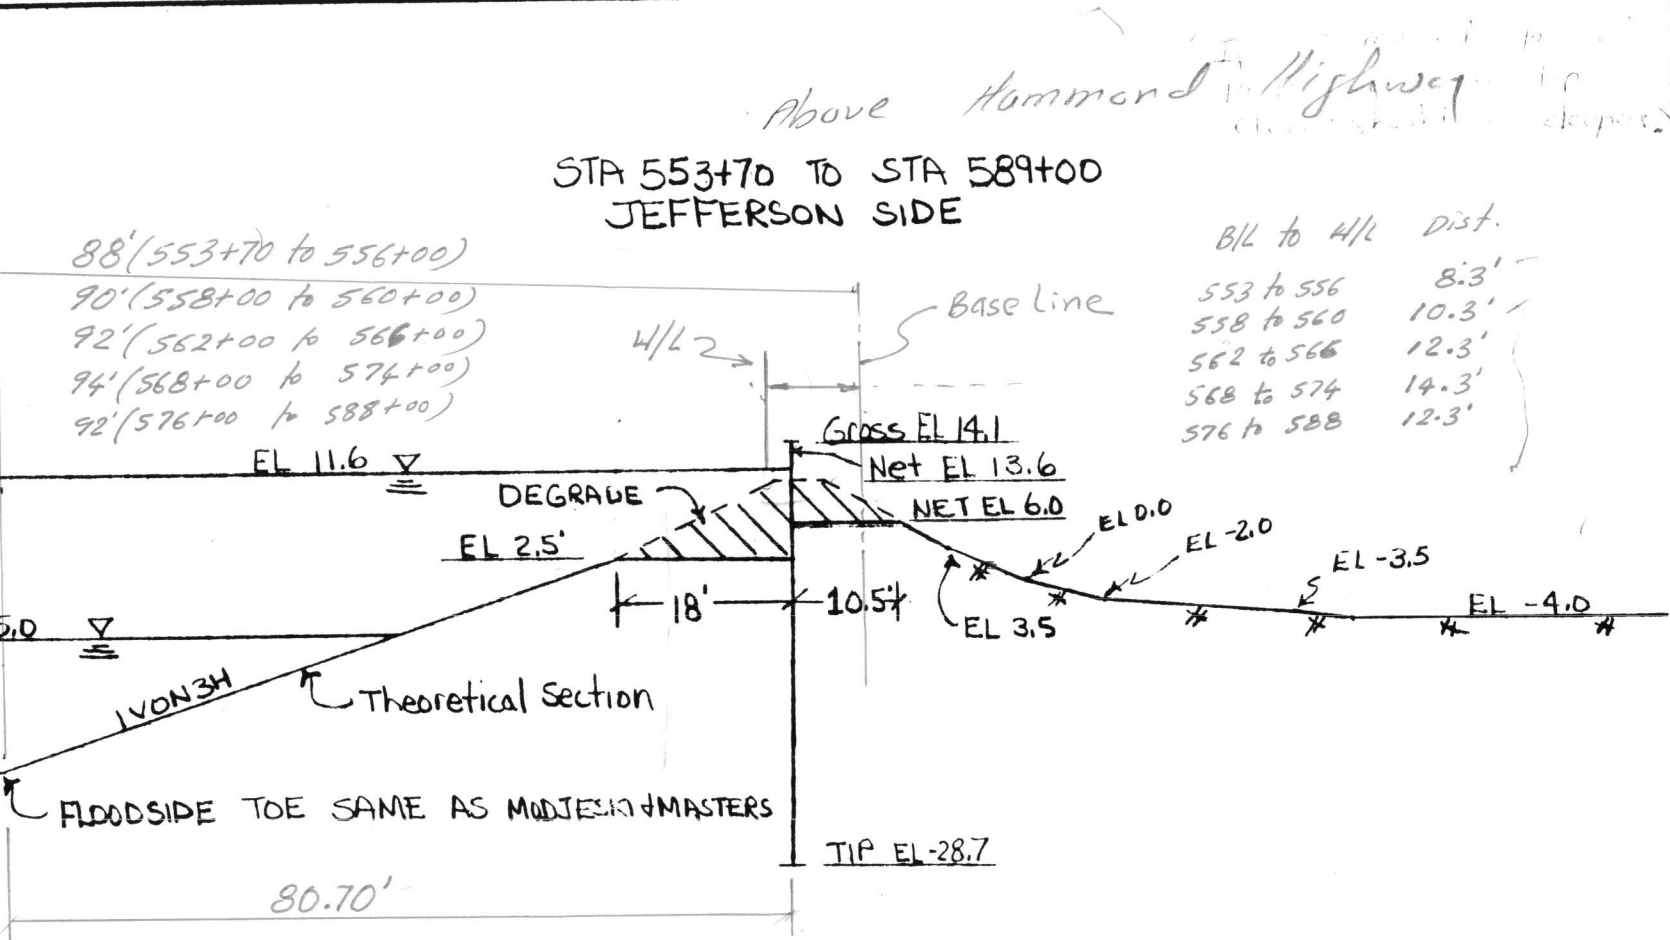 Above Hammond Highway
STA 553+70 TO STA 589+00
JEFFERSON SIDE
88'(553+70 to 556+00)
90'(558+00 to 560+00)
92'(562+00 to 566+00)
94'(568+00 to 574+00)
92'(576+00 to 588+00)
B/L to W/L Dist.
553 to 556 8.3'
558 to 560 10.3'
562 to 566 12.3'
568 to 574 14.3'
576 to 588 12.3'
W/L
Base Line
Gross EL 14.1
EL 11.6
Net EL 13.6
DEGRADE
NET EL 6.0
EL 0.0
EL -2.0
EL 2.5'
EL -3.5
18'
10.5'
EL 3.5
EL -4.0
5.0
1 V ON 3H
Theoretical Section
FLOODSIDE TOE SAME AS MODJESKI & MASTERS
TIP EL -28.7
80.70'